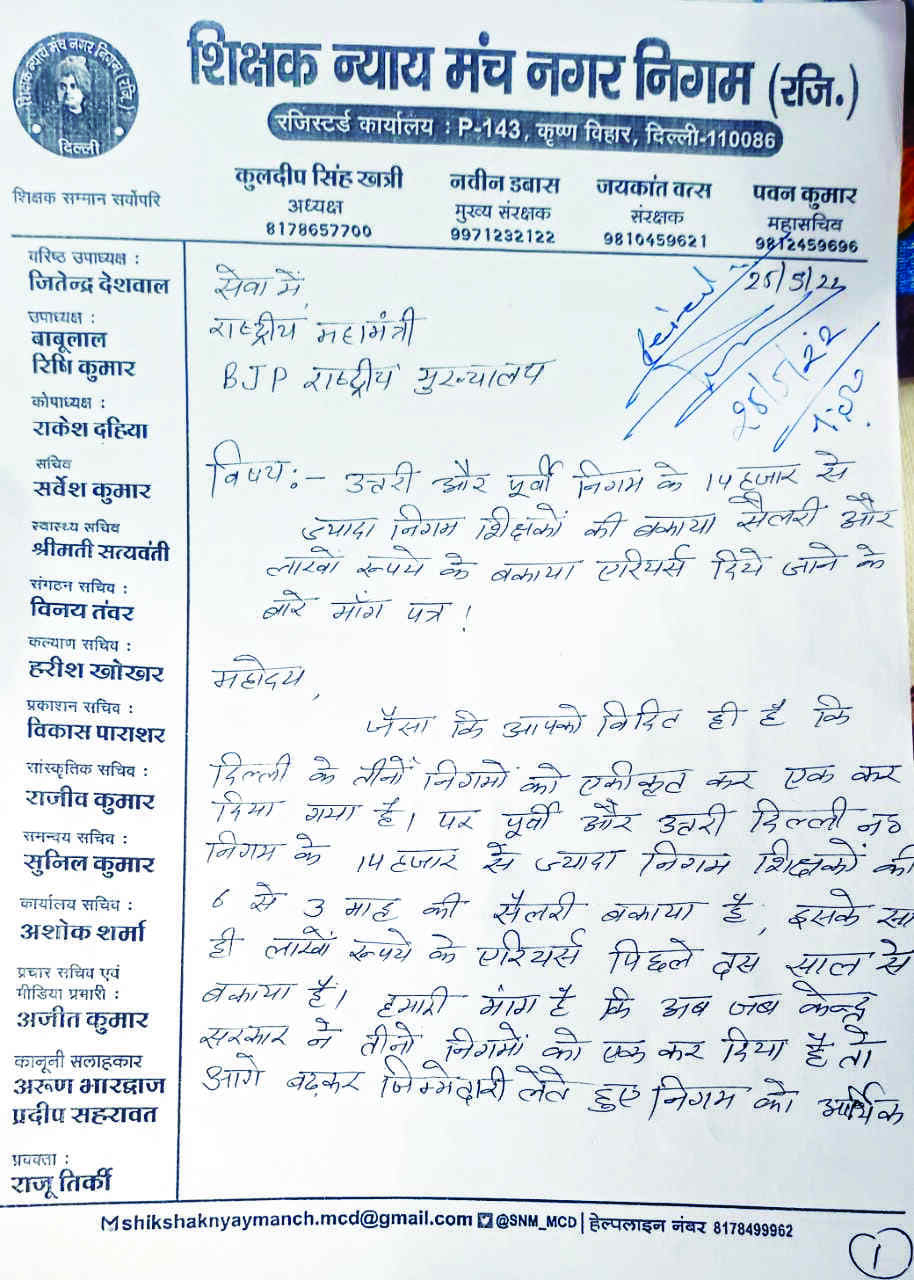 शिक्षक न्याय मंच नगर निगम (रजि.)
दिल्ली
शिक्षक न्याय मंच नगर निगम (रजि.)
रजिस्टर्ड कार्यालय : P-143, कृष्ण विहार, दिल्ली-110086
शिक्षक सम्मान सर्वोपरि
कुलदीप सिंह खत्री
अध्यक्ष
8178657700
नवीन डबास
मुख्य संरक्षक
9971232122
जयकांत वत्स
संरक्षक
9810459621
पवन कुमार
महासचिव
9812459696
वरिष्ठ उपाध्यक्ष :
जितेन्द्र देशवाल
उपाध्यक्ष :
बाबूलाल
रिषि कुमार
कोषाध्यक्ष :
राकेश दहिया
सचिव
सर्वेश कुमार
स्वास्थ्य सचिव
श्रीमती सत्यवंती
संगठन सचिव :
विनय तंवर
कल्याण सचिव :
हरीश खोखर
प्रकाशन सचिव :
विकास पाराशर
सांस्कृतिक सचिव :
राजीव कुमार
समन्वय सचिव :
सुनिल कुमार
कार्यालय सचिव :
अशोक शर्मा
प्रचार सचिव एवं
मीडिया प्रभारी :
अजीत कुमार
कानूनी सलाहकार
अरूण भारद्वाज
प्रदीप सहरावत
प्रवक्ता :
राजू तिर्की
25/5/22
25/5/22
सेवा में,
राष्ट्रीय महामंत्री
BJP राष्ट्रीय मुख्यालय
विषय:- उत्तरी और पूर्वी निगम के 14 हजार से
ज्यादा निगम शिक्षकों की बकाया सैलरी और
लाखों रूपये के बकाया एरियर्स दिये जाने के
बारे मॉंग पत्र !
महोदय,
जैसा कि आपको विदित ही है कि
दिल्ली के तीनों निगमों को एकीकृत कर एक कर
दिया गया है। पर पूर्वी और उत्तरी दिल्ली
निगम के 14 हजार से ज्यादा निगम शिक्षकों की
6 से 3 माह की सैलरी बकाया है, इसके सा
ही लाखों रूपये के एरियर्स पिछले दस साल से
बकाया है। हमारी मांग है कि अब जब केन्द्र
सरकार ने तीनो निगमों को एक कर दिया है तो
आगे बढ़कर जिम्मेदारी लेते हुए निगम को आर्थिक
shikshaknyaymanch.mcd@gmail.com @SNM_MCD | हेल्पलाइन नंबर 8178499962
1